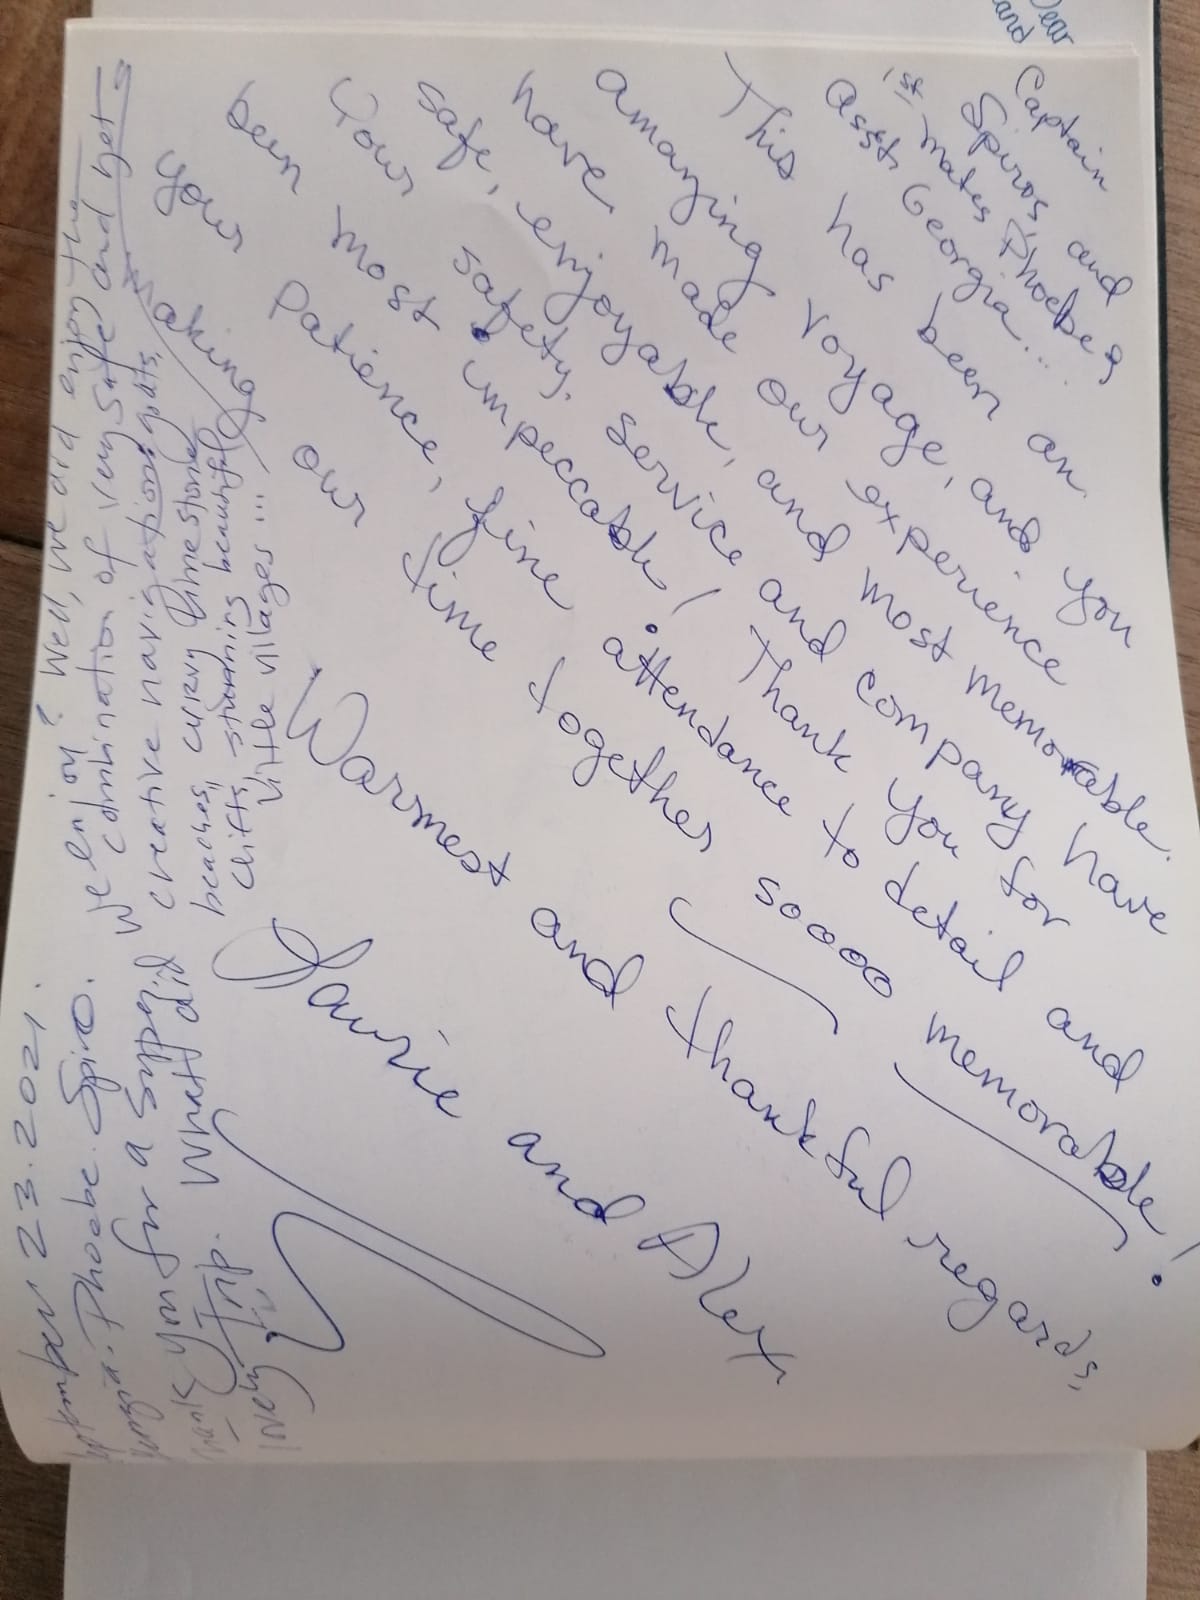 Dear
and
Captain
Spiros, and
1st mates Phoebe &
Asst. Georgia...
This has been an
amazing voyage, and you
have made our experience
safe, enjoyable, and most memorable.
Your safety, service and company have
been most impeccable! Thank you for
your patience, fine attendance to detail and
making our time together soooo memorable!
Warmest and thankful regards,
Laurie and Alex
September 23. 2021.
Georgia. Phoebe. Spiro.
Thank you for a super
lovely trip. What did
we enjoy? Well, we did enjoy the
combination of very safe and yet
creative navigation, goats,
beaches, curvy limestone
cliffs, stunning beautiful
little villages...